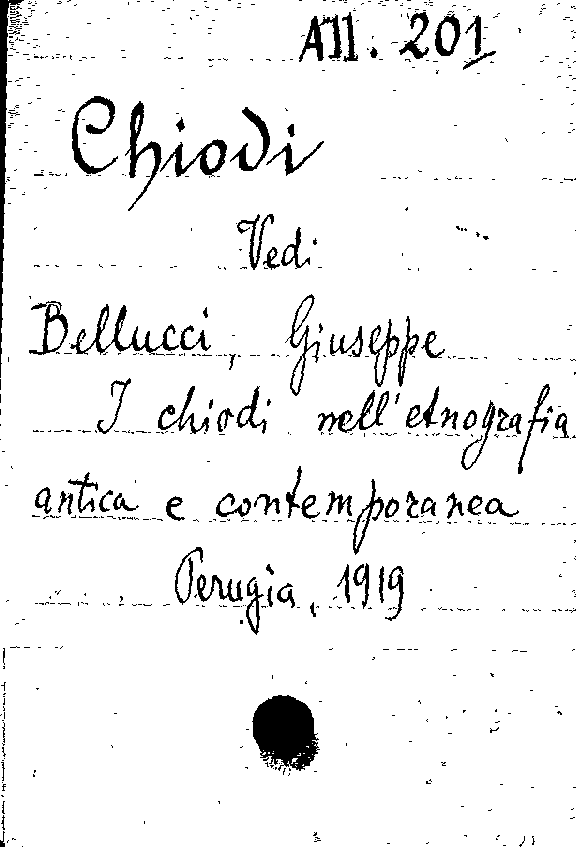 All. 201
Chiodi
Vedi
Bellucci, Giuseppe
I chiodi nell'etnografia
antica e contemporanea
Perugia, 1919